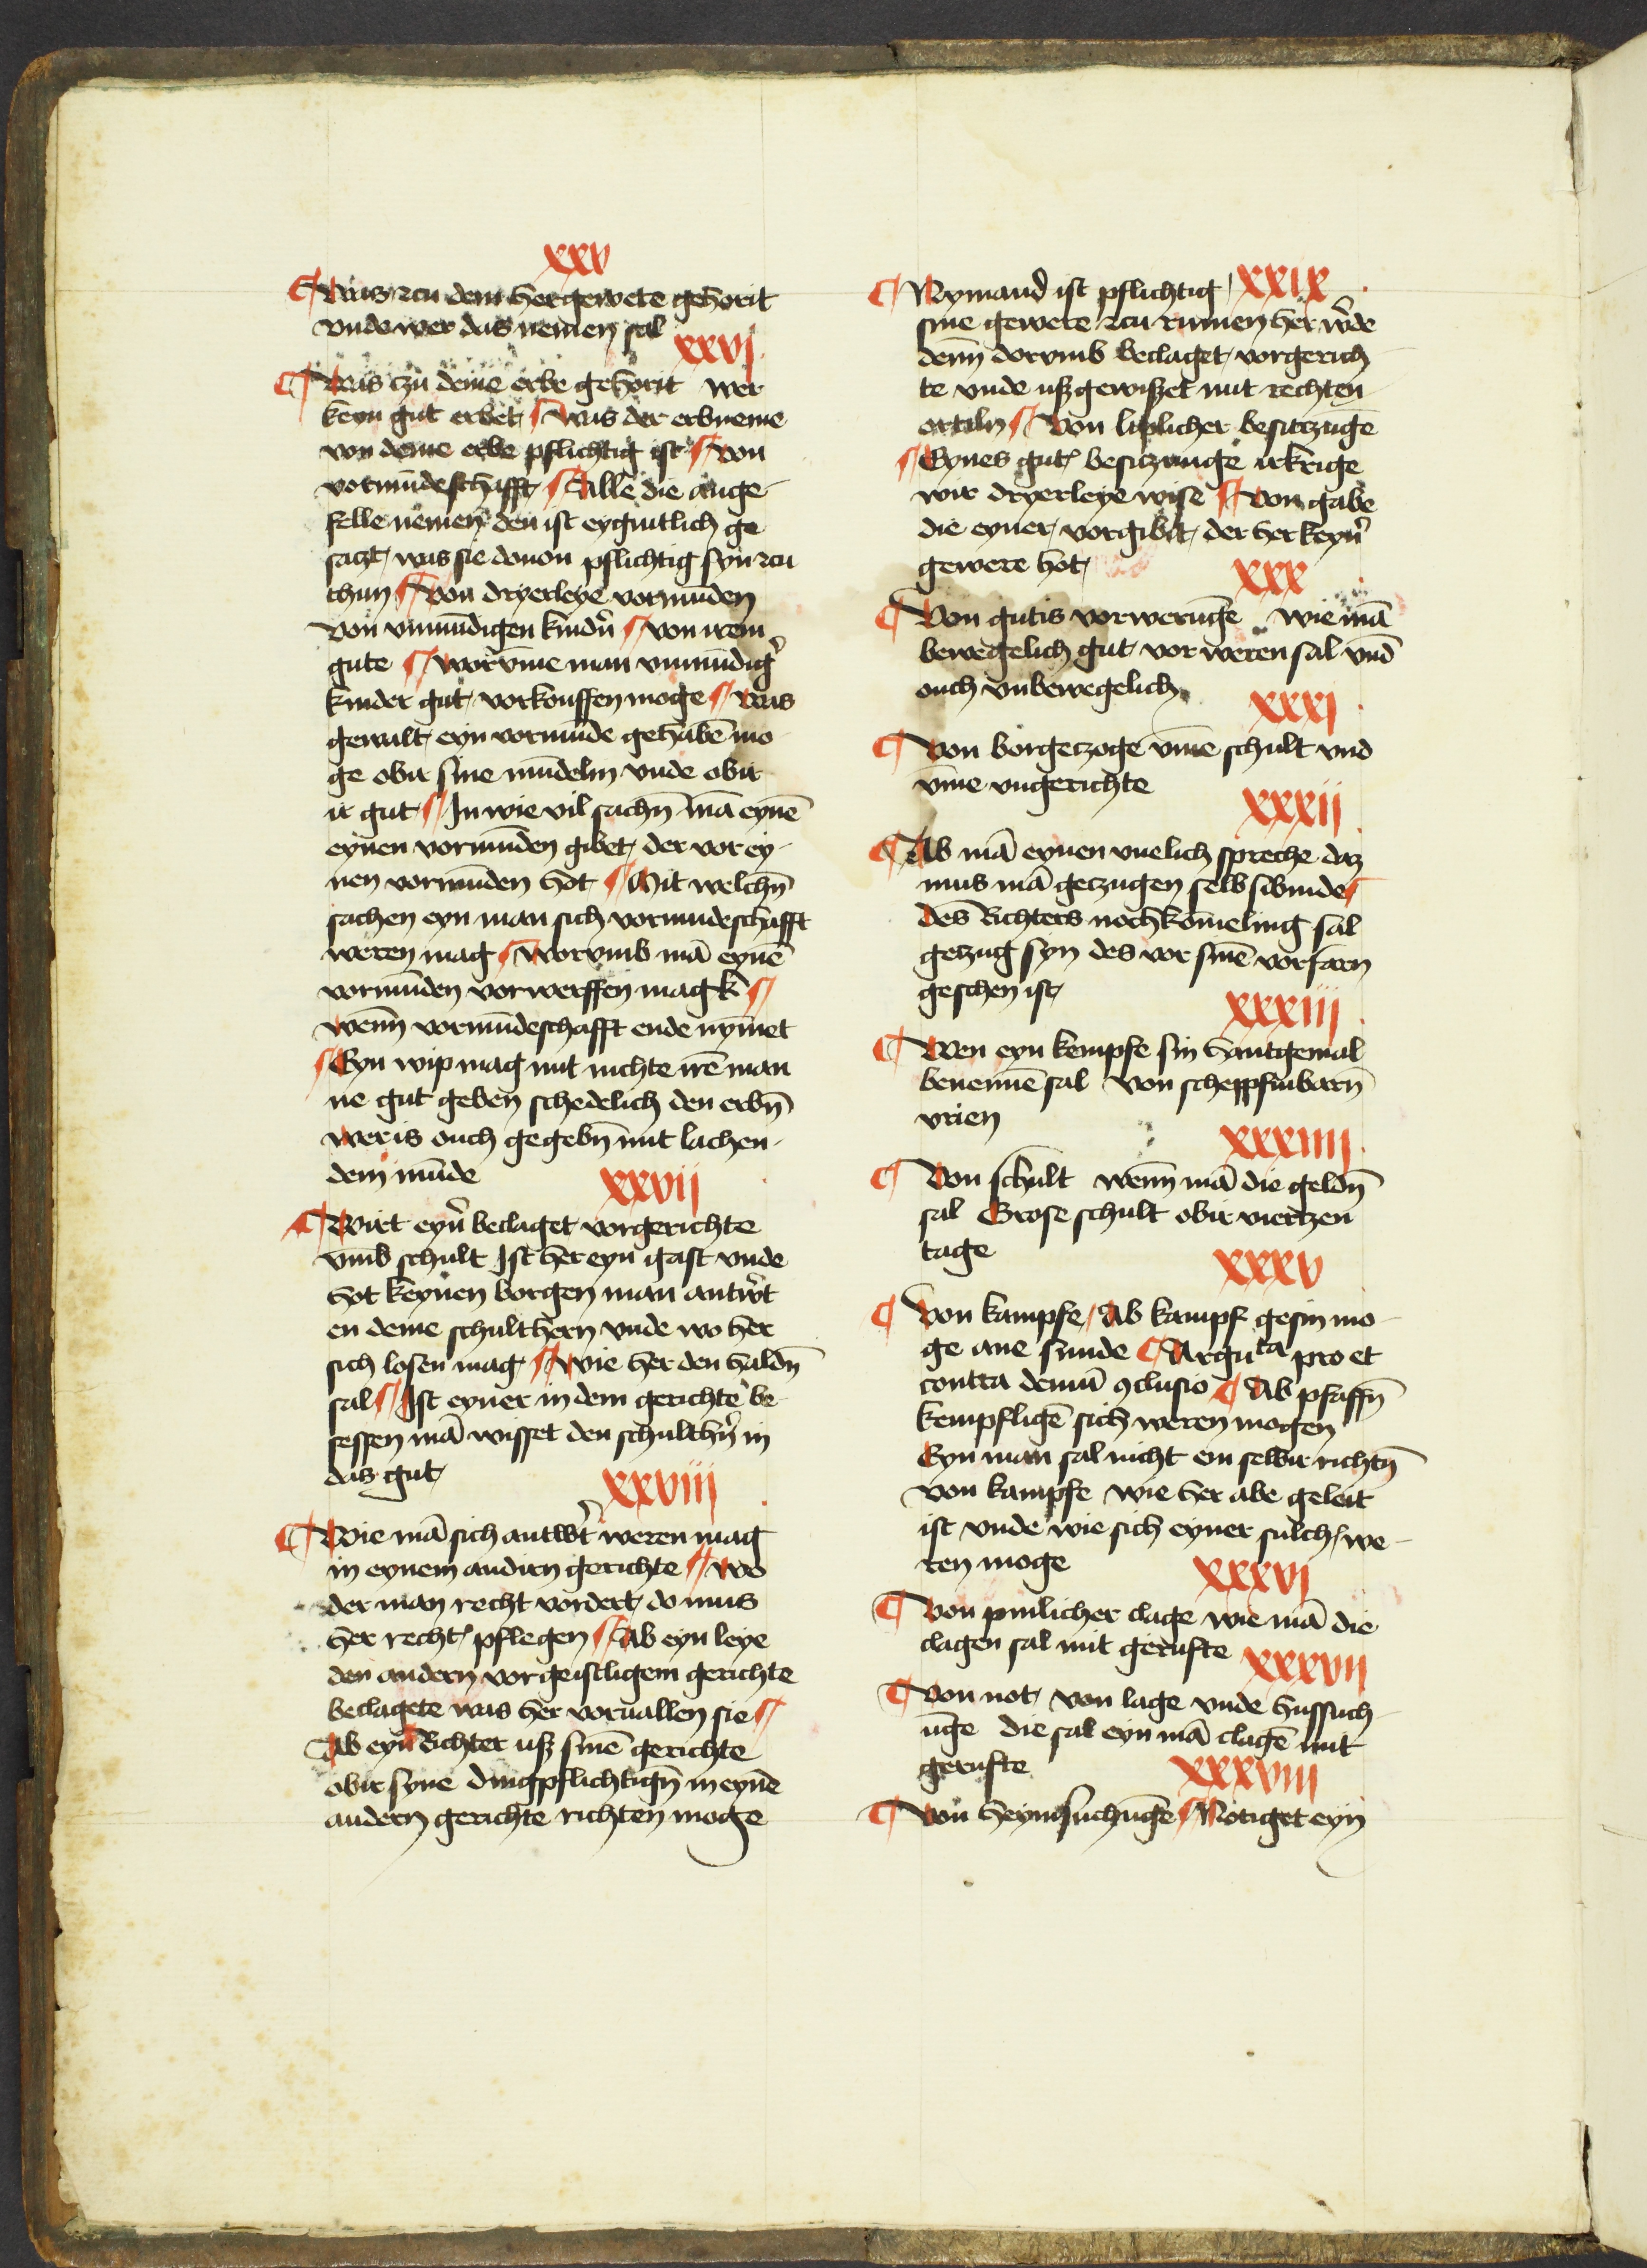 xxv
¶ Was zcu dem hergewete gehorit
vnde wer das nemen sal
xxvj
¶ Was czu deme erbe gehorit wer
keyn gut erbet ¶ Was der erbneme
von deme erbe pflichtig ist ¶ Von
vormūdeschafft ¶ Alle die ange-
felle nemen den ist eygintlich ge
saczt was sie douon pflichtig syn zcu
thun ¶ Von dryerleye vormūden
Von vnmūdigen kindn̄ ¶ Von irem
gute ¶ Worvm̄e man vnmūdiḡ
kinder gut vorkouffen moge ¶ Was
gewalt eyn vormūde gehabē mo
ge obir sine mūdelin vnde obir
ir gut ¶ In wie vil sachn̄ mā eynē
eynen vormūden gibet der vor ey-
nen vormūden hot ¶ Mit welchn̄
sachen eyn man sich vormūdeschafft
weren mag ¶ Worvmb mā eynē
vormūden vorwerffen magk ¶
Wenn̄ vormūdeschafft ende nym̄et
¶ Eyn wip mag mit nichte irē man
ne gut geben schedelich den erbn̄
wer is ouch gegebn̄ mit lachen-
dem mūde
xxvij
¶ Wirt eyn̄ beclaget vorgerichte
vmb schult Ist her eyn gast vnde
hot keynen borgen man antw̄t
en deme schulthern vnde wo her
sich losen mag ¶ Wie her den haldn̄
sal ¶ Ist eyner in dem gerichte be-
sessen mā wisset den schulthn̄ in
das gut
xxviij
¶ Wie mā sich antw̄t weren mag
in eynem andirn gerichte ¶ Wo
der man recht vordert do mus
her recht pflegen ¶ Ab eyn leye
den andern vor geistligem gerichte
beclagete was her voruallen sie ¶
Ab eyn Richter uß sinē gerichte
obir syne dingpflichtign̄ in eynē
andern gerichte richten moge
¶ Nymand ist pflichtig xxix
sine gewere zcu rumen her w̄de
denn̄ dorvmb beclaget vorgerich
te vnde uß gewißet mit rechten
orteiln ¶ Von liplicher besitzūge
¶ Eynes gut besitzunge irkrige
wir dryerleye wise ¶ Von gabe
die eyner vorgibit der her keyn̄
gewere hot
xxx
¶ Von gutis vorwerūge wie mā
bewegelich gut vor weren sal vnd
ouch vnbewegelich
xxxj
¶ Von borgeczoge vm̄e schult vnd
vm̄e vngerichte
xxxij
¶ Ab mā eynen vnelich spreche daz
mus mā geczugen selb sibinde ¶
Des Richters nochkomeling sal
geczug syn des vor sinē vorfarn
geschen ist
xxxiij
¶ Wen eyn kempfe sin hantgemal
benennē sal Von scheppfinbarn̄
vrien
xxxiiij
¶ Von schult wenn̄ mā die geldn̄
sal Grose schult obir viertzen
tage
xxxv
¶ Von kampfe Ab kampf gesin mo
ge ane sunde ¶ Arguta pro et
contra demū ꝯclusio ¶ Ab pfaffn̄
kempfligē sich weren mogen
Eyn man sal nicht em selbir richtn̄
Von kampfe wie her abe geleit
ist vnde wie sich eyner sulch we-
ren moge
xxxvj
¶ Von pinlicher clage wie mā die
clagen sal mit gerufte
xxxvij
¶ Von not von lage vnde hussuch
ūge die sal eyn mā clagē mit
gerufte
xxxviij
¶ Von heymsuchūge ¶ Notiget eyn